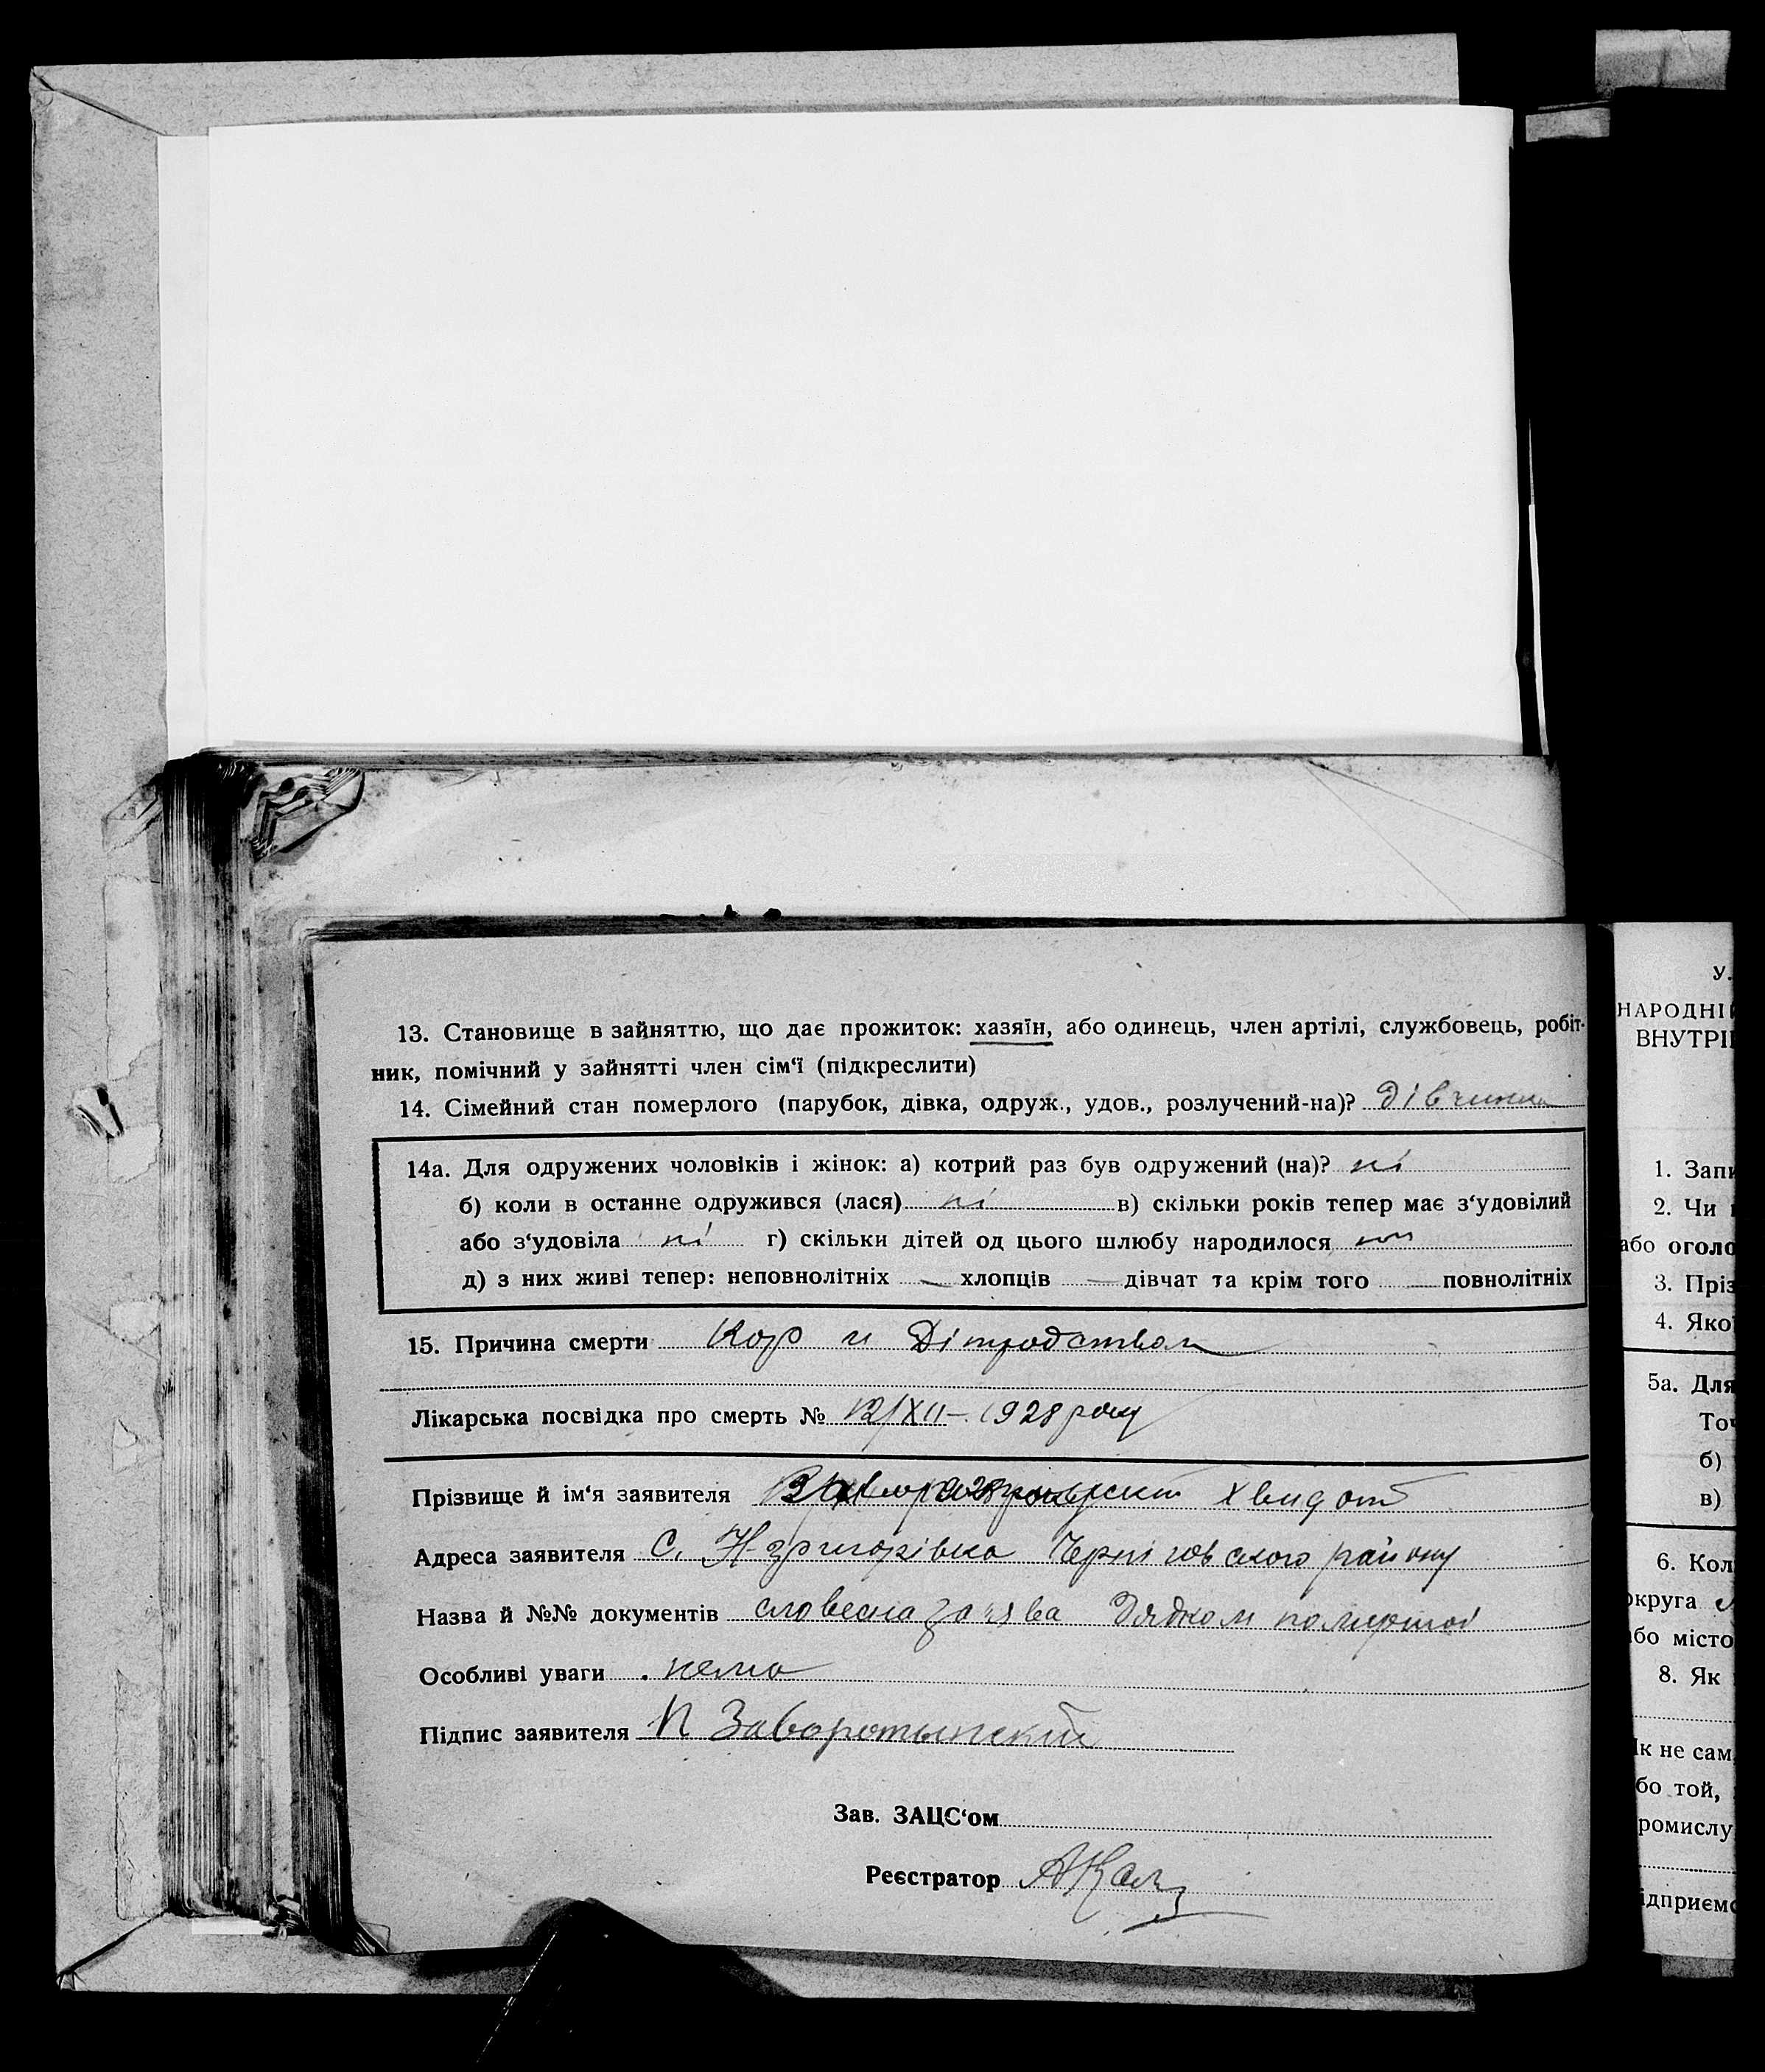 13. Становище в зайняттю, що дає прожиток: хазяїн, або одинець, член артілі, службовець, робіт-
ник, помічний у зайнятті член сім‘ї (підкреслити)
14. Сімейний стан померлого (парубок, дівка, одруж., удов., розлучений-на)? дівчина
14а. Для одружених чоловіків і жінок: а) котрий раз був одружений (на)? ні
б) коли в останнє одружився (лася) ні в) скільки років тепер має з‘удовілий
або з‘удовіла ні г) скільки дітей од цього шлюбу народилося
д) з них живі тепер: неповнолітніх — хлопців — дівчат та крім того — повнолітніх
15. Причина смерти Кор и
Лікарська посвідка про смерть № 12/XII – 1928 року
Прізвище й ім‘я заявителя Хвидот
Адреса заявителя С. Черніговського району
Назва й №№ документів словесна заява Дядком помершої
Особливі уваги нема
Підпис заявителя П Заворотынский
Зав. ЗАЦС‘ом
Реєстратор
У.
НАРОДНІЙ
ВНУТРІ
1. Запи
2. Чи
або оголо
3. Пріз
4. Яко
5а. Для
Точ
б)
в)
6. Кол
округа
або місто
8. Як
Як не сам
або той,
ромислу
ідприємс